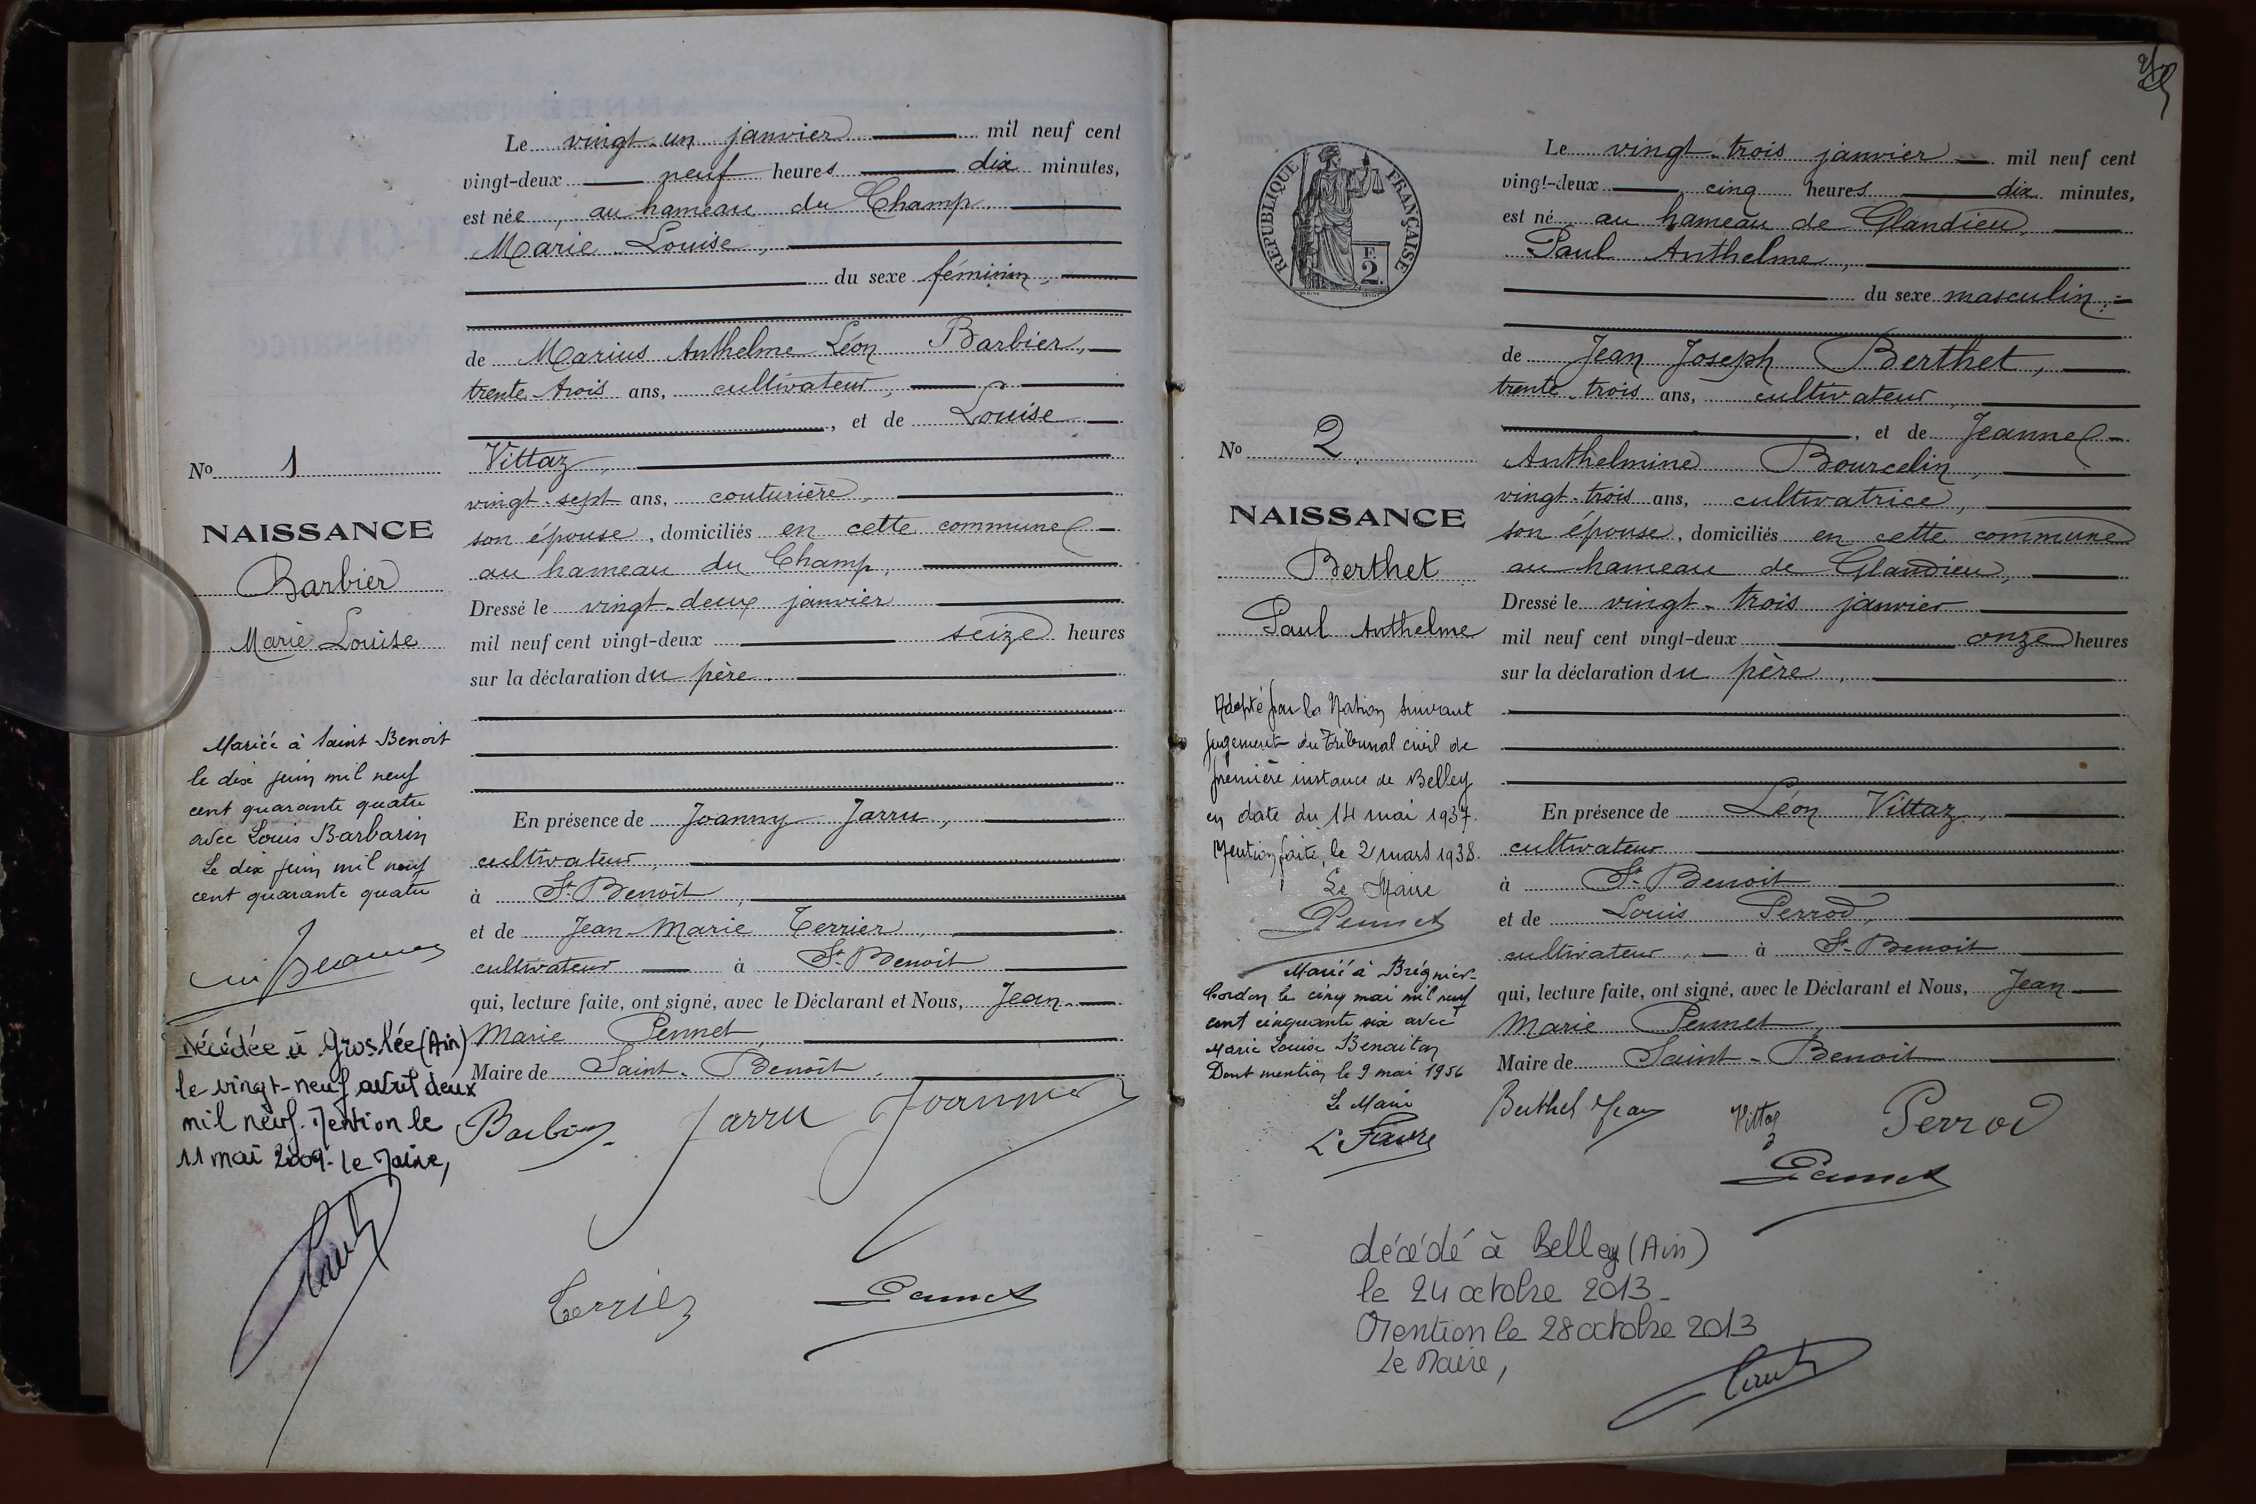 Le vingt-un janvier mil neuf cent
vingt-deux neuf heures dix minutes,
est née, au hameau du Champ.
Marie-Louise,
du sexe féminin,
de Marius Anthelme Léon Barbier,
trente-trois ans, cultivateur,
, et de Louise
Vittaz,
vingt-sept ans, couturière,
son épouse, domiciliés en cette commune
au hameau du Champ,
Dressé le vingt-deux janvier
mil neuf cent vingt-deux seize heures
sur la déclaration du père.
En présence de Joanny Jarru,
cultivateur,
à St. Benoît,
et de Jean-Marie Terrier,
cultivateur à St. Benoît
qui, lecture faite, ont signé, avec le Déclarant et Nous, Jean-
Marie Pennet,
Maire de Saint-Benoît.
Jarru Joanny
Terrier
Pennet
No 1
NAISSANCE
Barbier
Marie Louise
Mariée à Saint Benoit
le dix juin mil neuf
cent quarante quatre
avec Louis Barbarin
Le dix juin mil neuf
cent quarante quatre
Décédée à Groslée (Ain)
le vingt-neuf avril deux
mil neuf. Mention le
11 mai 2009. Le Maire,
REPUBLIQUE FRANÇAISE
F.
2.
No 2.
NAISSANCE
Berthet
Paul Anthelme
Adopté par la Nation suivant
jugement du Tribunal civil de
première instance de Belley
en date du 14 mai 1937.
Mention faite, le 2 mars 1938.
Le Maire
Pennet
Marié à Brégnier-
Cordon le cinq mai mil neuf
cent cinquante six avec
Marie Louise Benaiton
Dont mention le 9 mai 1956
Le Maire
L Favre
Le vingt-trois janvier mil neuf cent
vingt-deux cinq heures dix minutes,
est né au hameau de Glandieu,
Paul Anthelme,
du sexe masculin,
de Jean Joseph Berthet,
trente-trois ans, cultivateur,
, et de Jeanne
Anthelmine Bourcelin,
vingt-trois ans, cultivatrice,
son épouse, domiciliés en cette commune
au hameau de Glandieu,
Dressé le vingt-trois janvier
mil neuf cent vingt-deux onze heures
sur la déclaration du père,
En présence de Léon Vittaz,
cultivateur
à St. Benoit
et de Louis Perrod,
cultivateur, à St. Benoit
qui, lecture faite, ont signé, avec le Déclarant et Nous, Jean
Marie Pennet,
Maire de Saint-Benoit
Berthet Jean Vittaz Perrod
Pennet
décédé à Belley (Ain)
le 24 octobre 2013-
Mention le 28 octobre 2013
Le Maire,